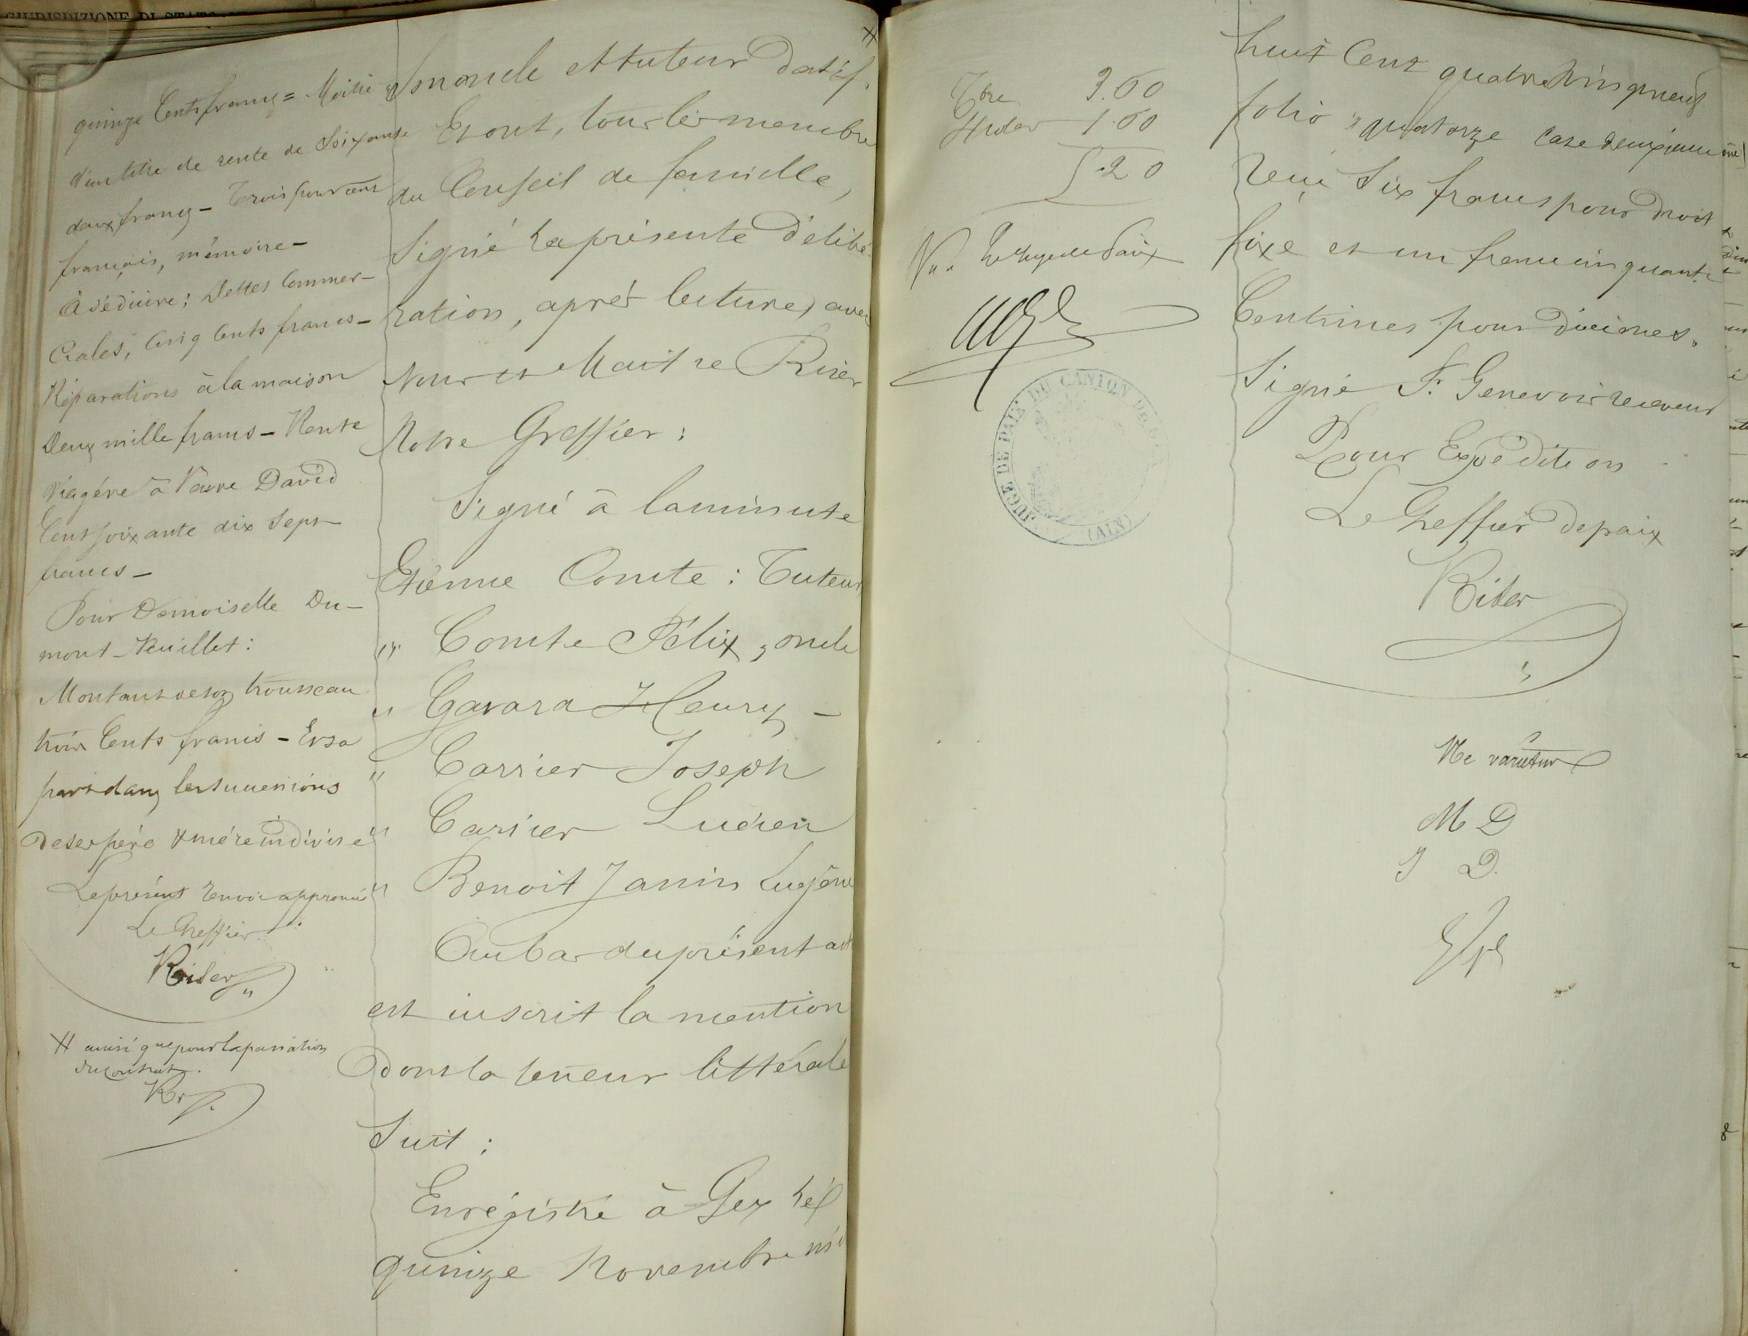 GIURISDIZIONE DI STATO
quinze Cents francs = Moitié
d'un titre de rente de Soixante
deux francs - Trois pour cent
français, mémoire -
à déduire; Dettes Commer-
ciales, Cinq Cents francs -
Réparations à la maison
Deux mille francs - Rente
Viagère à Veuve David
Cent soixante dix Sept
francs -
Pour Demoiselle Du-
mont-Vuillet :
Montant de son trousseau
trois Cents francs - Et sa
part dans les successions
de ses père & mère indivise
Le présent renvoi approuvé
Le Greffier
Rider
# ainsi que pour la passation
du contrat.
Rr
Smonde et tuteur datif. #
Et ont, tous les membres
du Conseil de famille,
Signé la présente délibé-
ration, après lecture, avec
Nous et Maître Rider
Notre Greffier :
Signé à la minute
Etienne Comte : Tuteur
" Comte Félix, oncle
" Gavard Henry -
" Carrier Joseph
" Carrier Lucien
" Benoit Janin Eugène
Au bas du présent act
est inscrit la mention
dont la teneur littérale
Suit :
Enrégistré à Gex le
quinze Novembre mil
Tbre 3.60
1.60
5.20
Vu. Le Juge de Paix
JUGE DE PAIX DU CANTON DE
(AIN)
huit Cent quatre Vingt neuf
folio quatorze Case deuxième
reçu Six francs pour droit
fixe et un franc cinquante
Centimes pour décimes.
Signé F. Genevois receveur
Pour Expédition
Le Greffier de paix
Rider
Ne varietur
M D
J D.